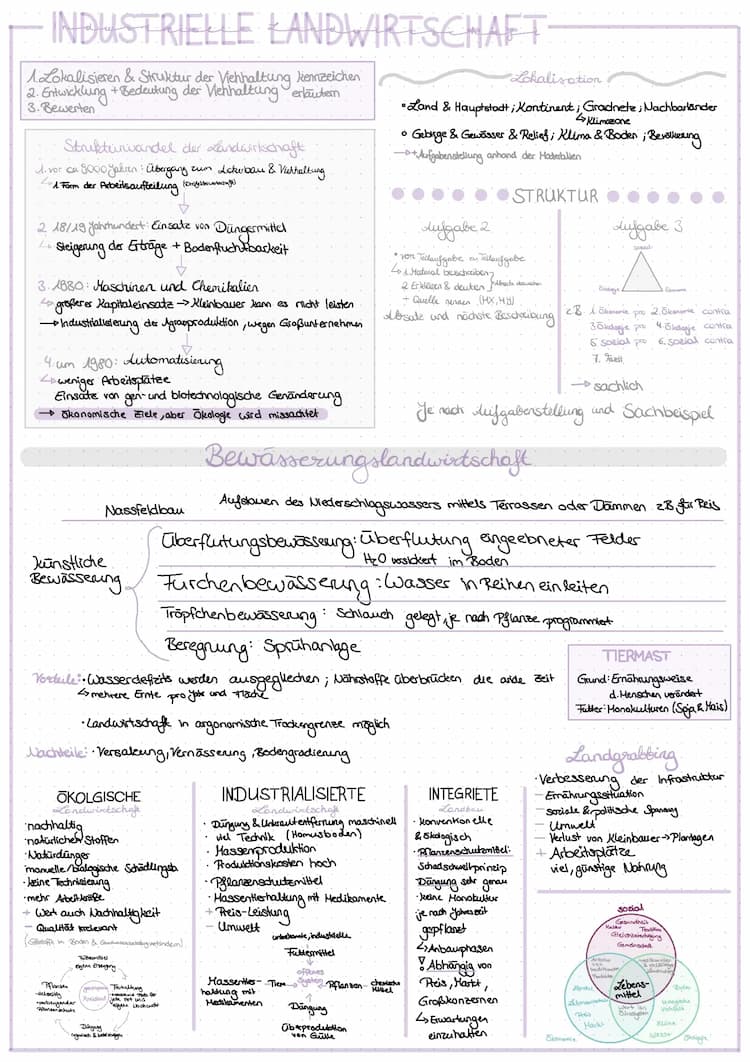 INDUSTRIELLE LANDWIRTSCHAFT
1. Lokalisieren & Struktur der Viehhaltung kennzeichen
2. Entwicklung + Bedeutung der Viehhaltung erläutern
3. Bewerten
Lokalisation
• Land & Hauptstadt ; Kontinent ; Gradnetz ; Nachbarländer
↳ Klimazone
• Gebirge & Gewässer & Relief ; Klima & Boden ; Bevölkerung
→ + Aufgabenstellung anhand der Materialien
Strukturwandel der Landwirtschaft
1. vor ca 9000 Jahren: Übergang zum Ackerbau & Viehhaltung
↳ 1 Form der Arbeitsaufteilung
2. 18/19 Jahrhundert: Einsatz von Düngermittel
↳ Steigerung der Erträge + Bodenfruchtbarkeit
3. 1980: Maschinen und Chemikalien
↳ größerer Kapitaleinsatz → Kleinbauer kann es nicht leisten
→ Industrialisierung der Agrarproduktion, wegen Großunternehmen
4. um 1980: Automatisierung
↳ weniger Arbeitsplätze
Einsatz von gen- und biotechnologische Genänderung
→ Ökonomische Ziele, aber Ökologie wird missachtet
STRUKTUR
Aufgabe 2
• von Teilaufgabe zu Teilaufgabe
↳ 1. Material beschreiben
2. Erklären & deuten
+ Quelle nennen (MX, MY)
Absatz und nächste Beschreibung
Aufgabe 3
Sozial
Ökologie
Ökonomie
z.B. 1. Ökonomie pro 2. Ökonomie contra
3. Ökologie pro 4. Ökologie contra
5. sozial pro 6. sozial contra
7. Fazit
→ sachlich
Je nach Aufgabenstellung und Sachbeispiel
Bewässerungslandwirtschaft
Nassfeldbau Aufstauen des Niederschlagswassers mittels Terrassen oder Dämmen z.B für Reis
künstliche
Bewässerung
Überflutungsbewässerung: Überflutung eingeebneter Felder
H₂O versickert im Boden
Furchenbewässerung: Wasser in Reihen einleiten
Tröpfchenbewässerung: Schlauch gelegt, je nach Pflanze programmiert
Beregnung: Sprühanlage
Vorteile: • Wasserdefizits werden ausgegliechen ; Nährstoffe überbrücken die aride Zeit
↳ mehrere Ernte pro Jahr und Fläche
• Landwirtschaft in argonomische Trockengrenze möglich
Nachteile: • Versalzung, Vernässerung, Bodengradierung
TIERMAST
Grund: Ernährungsweise
d. Menschen verändert
Futter: Monokulturen (Soja & Mais)
Landgrabbing
• Verbesserung der Infrastruktur
— Ernährungssituation
— soziale & politische Spannung
— Umwelt
— Verlust von Kleinbauer → Plantagen
+ Arbeitsplätze
viel, günstige Nahrung
ÖKOLGISCHE
Landwirtschaft
• nachhaltig
• natürlichen Stoffen
• Natürdünger
manuelle/biologische Schädlingsb.
• keine Technisierung
• mehr Arbeitskräfte
+ Wert auch Nachhaltigkeit
— Qualität irrelevant
Futtermittel
eigene Erzeugung
Düngung
INDUSTRIALISIERTE
Landwirtschaft
• Düngung & Unkrautentfernung maschinell
• viel Technik (Homusboden)
• Massenproduktion
• Produktionskosten hoch
• Pflanzenschutzmittel
• Massentierhaltung mit Medikamente
+ Preis-Leistung
— Umwelt
unbekannte, industrielle
Futtermittel
Massentier-
haltung mit
Medikamenten
Tiere
offenes
System
Pflanzen
chemische
Mittel
Düngung
Überproduktion
von Gülle
INTEGRIETE
Landbau
• konventionelle
& ökologisch
• Pflanzenschutzmittel:
Schadschwellprinzip
Düngung sehr genau
• keine Monokultur
je nach Jahreszeit
gepflanzt
↳ Anbauphasen
! Abhängig von
Preis, Markt,
Großkonzernen
↳ Erwartungen
einzuhalten
sozial
Gesundheit
Kultur
Tradition
Gleichberechtigung
Gemeinschaft
Lebens-
mittel
Preis
Markt
Klima
Wasser
Ökonomie
Ökologie